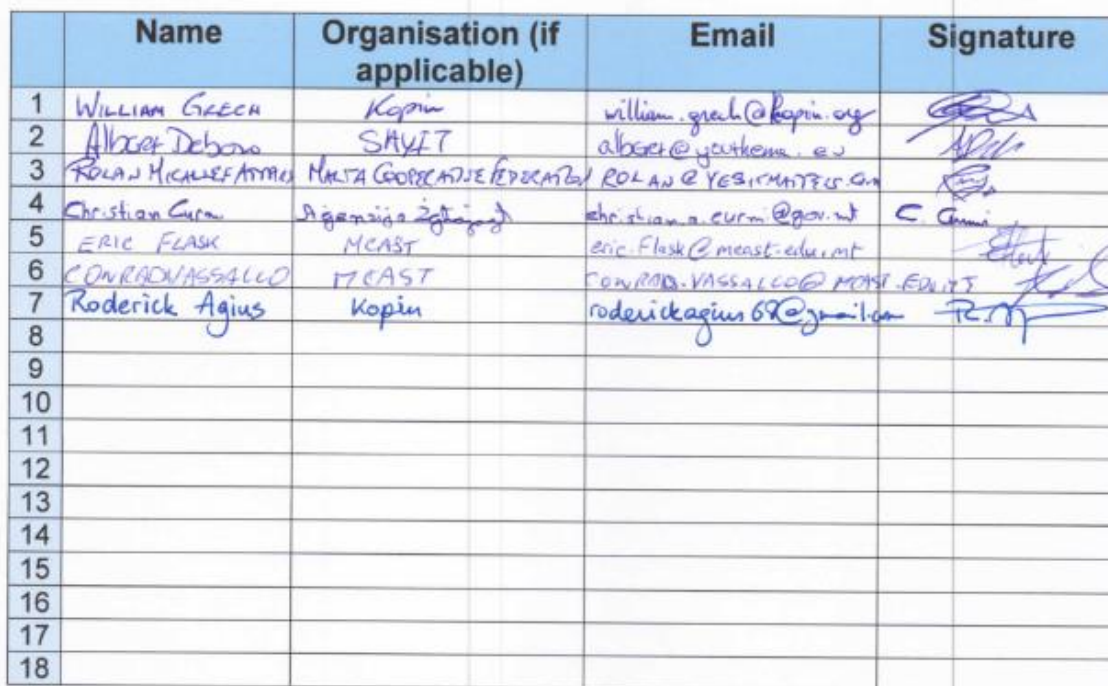 Name Organisation (if applicable) Email Signature
1 WILLIAM GRECH Kopin william.grech@kopin.org
2 Albert Debono SAYIT albert@youthema.eu
3 ROLAN MICALLEF ATTARD MALTA COOPERATIVE FEDERATION ROLAN@YESITMATTERS.COM
4 Christian Curmi Aġenzija Żgħażagħ christian.a.curmi@gov.mt C. Curmi
5 ERIC FLASK MCAST eric.flask@mcast.edu.mt
6 CONRAD VASSALLO MCAST CONRAD.VASSALLO@MCAST.EDU.MT
7 Roderick Agius Kopin roderickagius68@gmail.com
8
9
10
11
12
13
14
15
16
17
18